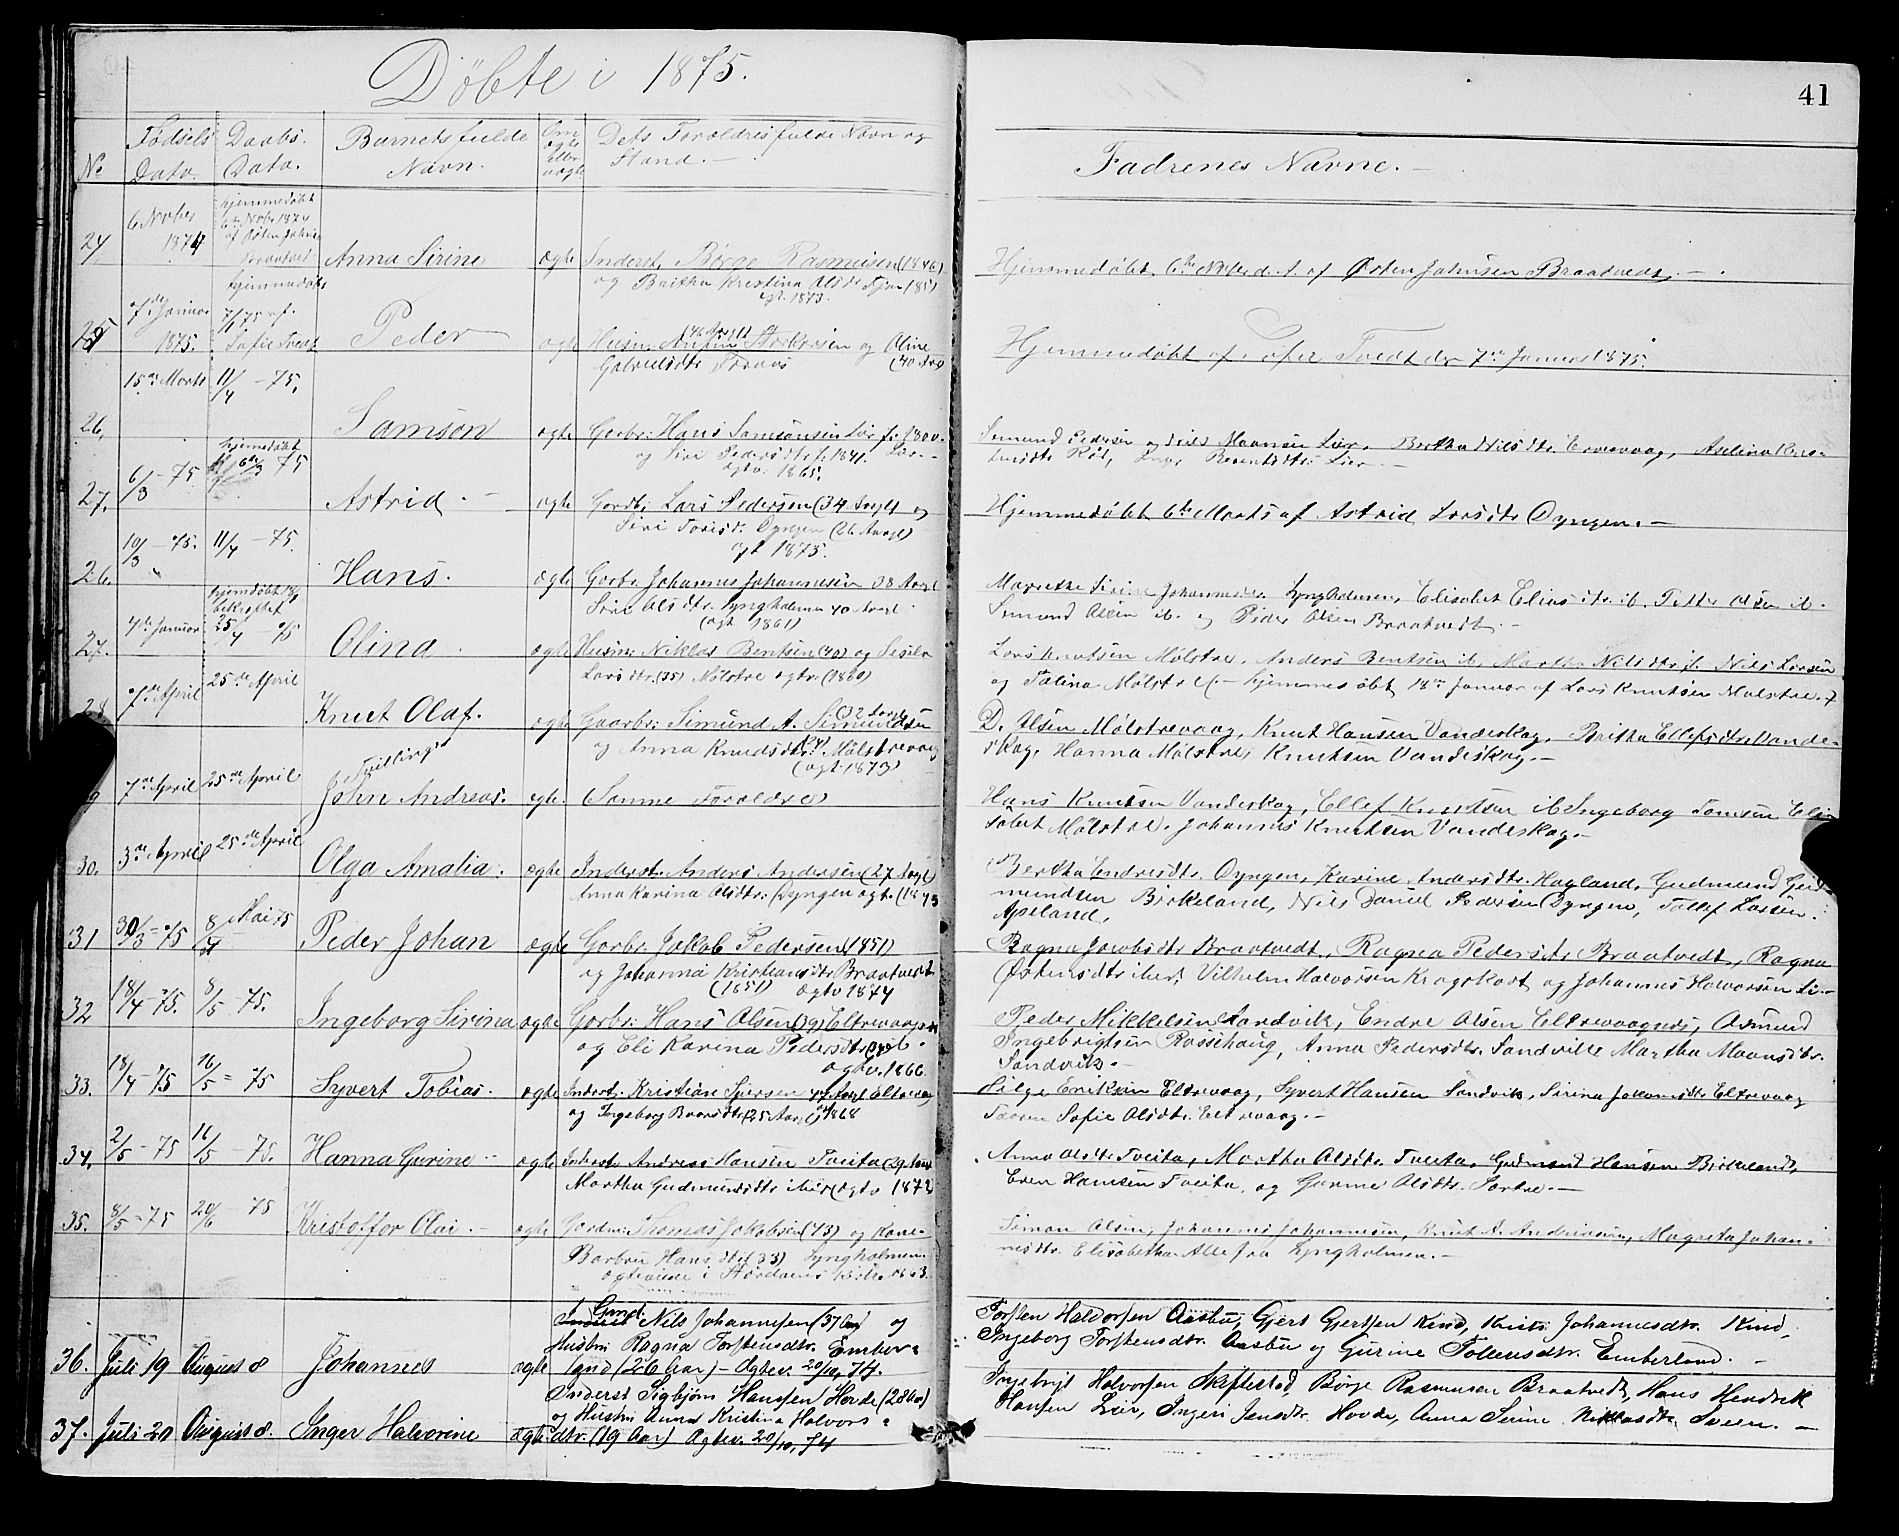 Døbte i 1875.
41
No
Fødsels Dato.
Daabs. Dato.
Barnets fulde Navn.
Om ægte eller uægte
Dets Forældres fulde Navn og Stand. —
Fadrenes Navne. —
24
6 Nobr 1874
hjemmedøbt 6te Nobr 1874 af Østen Johnsen Braatvedt
Anna Sirine
ægte
Inderst, Børge Rasmusen (1846)
og Britha Kristina Olsdtr 1851
ægt. 1873.
Hjemmedøbt 6te Nobr d. A. af Østen Johnsen Braatvedt. —
25
7de Januar 1875.
hjemmedøbt 7/1 75 af Sofie Tvedt
Peder
ægte
og Oline
Gabrielsdtr (40 Aar)
Hjemmedøbt af Sofie Tvedt den 7de Januar 1875.
26.
15de Marts
11/4 — 75.
Samson
ægte
Gaarbr: Hans Samsonsen Lier f: 1840.
og Siri Pedersdtr f: 1841. Lier —
ægtv. 1865.
Semund Pedersen og Nils Maansen Lier. Bertha Nilsdtr. Ervevaag, Aselina Knu-
dsdtr Rød, Inger Berentsdtr: Lier —
27.
6/3 — 75
hjemmedøbt 6te/3 75
Astrid. —
ægte
Gordb; Lars Pedersen (34 Aargl) og
Siri Dyngen (26 Aargl)
ægt 1875.
Hjemmedøbt 6te Marts af Astrid Larsdtr Dyngen. —
26.
10/3 — 75.
11/4 — 75.
Hans.
ægte
Gorbr. Johannes Johannesen 38 Aargl
Siri Olsdtr. Lyngholmen 40 Aargl.
(ægt 1861)
Marethe Sirine Johannesdtr. Lyngholmen, Elisabet Eliasdtr. ib. Petter Olsen ib.
Semund Olsen ib. og Peder Olsen Braatvedt. —
27.
4de Januar
hjemdøbt 18/1 bekræftet 25/4 — 75
Olina.
ægte
Husm: Niklas Bentsen (40) og Sesilia
Larsdtr. (35) Mølstre ægtv. (1860)
Lars Knutsen Mølstre, Anders Bentsen ib. Martha Nilsdtr. ib. Nils Larsen
og Talina Mølstre (— hjemmedøbt 18de Januar af Lars Knutsen Mølstre.
28
7de April
25de April
Knut Olaf.
ægte
Gaarbr: Simund A. Simundsen (32 Aargl)
og Anna Knudsdtr. Mølstrevaag
(ægt. 1873)
D. Olsen Mølstrevaag, Knut Hansen Vandeskog, Britha Ellefsdtr. Vande-
skog, Hanna Mølstre, Knutsen Vandeskog. —
9
7de April
25de April
Tvillinger
John Andreas.
ægte.
(Samme Forældre)
Hans Knutsen Vandeskog, Ellef Knutsen ib Ingeborg Tomsen Eli-
sabet Mølstre. Johannes Knutsen Vandeskog. —
30.
3de April
25de April
Olga Amalia.
ægte
Inderst. Anders Andersen (27 Aargl)
Anna Karina Olsdtr. (Dyngen ægt. (1873
Bertha Endresdtr. Dyngen, Karine Andersdtr. Hagland, Gudmund Gud-
mundsen Birkeland, Nils Daniel Pedersen Dyngen, Tollef Larsen
Apeland,
31
30/3 — 75
8 Mai 75
Peder Johan
ægte
Gorbr: Jakob Pedersen (1851)
og Johanna Kristiansdtr. Braatvedt
(1851) ægtv 1874
Ragna Jacobsdtr. Braatvedt, Ragna Pedersdtr Braatvedt, Ragna
Østensdtr. ibid, Vilhelm Halvorsen Kragskot og Johannes Halvorsen Li. —
32
18/4 — 75.
8/5 — 75.
Ingeborg Sirina
ægte
Gorbr: Hans Olsen (39) Eltrevaag
og Eli Karina Pedersdtr.
ægtv. 1866.
Peder Mikkelsen Sandvik, Endre Olsen Eltrevaagnes, Asmund
Ingebrigtsen Rossehaug, Anna Pedersdtr. Sandvik Martha Maansdtr.
Sandvik. —
33.
18/4 — 75
16/5 = 75
Syvert Tobias.
ægte
Inderst. Kristian Sjursen 47 Aargl Eltrevaag
og Ingeborg Baarsdtr. (25 Aargl) 1868
Helge Eriksen Eltrevaag, Syvert Hansen Sandvik, Sirina Jakobsdtr Eltrevaag
Sofie Olsdtr. Eltrevaag. —
34.
2/5 — 75
16/5 — 75.
Hanna Gurine
ægte
Inderst, Andreas Hansen Tveita (29 Aar)
Martha Gudmundsdtr. ibid (ægtv 1872)
Anna Olsdtr Tveita, Martha Olsdtr. Tveita, Gudmund Hansen Birkeland,
Even Hansen Tveita, og Gurine Olsdtr. Sartre. —
35.
8/5 — 75
20/6 — 75
Kristoffer Olai. —
ægte
Gordm: Thomas Jakobsen (43) og Kone
Barbru Hansdtr (33) Lyngholmen
ægteviede i Stordøens Kirke 1863.
Simon Olsen, Johannes Johannesen, Knut A. Andreasen, Magreta Johan-
nesdtr. Elisabetha Alle fra Lyngholmen. —
36.
Juli 19
August 8
Johannes
ægte
Inderst Gmd. Nils Johannesen (37 Aar) og
Hustru Ragna Torstensdtr. Ember-
land (26 Aar) — Ægtev. 20/10, 74.
Torsten Haldorsen Aasbu, Gjert Gjertsen Kind, Kristi Johannesdtr. Kind,
Ingeborg Torstensdtr. Aasbu og Gurine Tollensdtr. Emberland. —
37.
Juli 20
August 8.
Inger Halvorine
ægte
Inderst Sigbjørn Hansen Hovde (28 Aar)
og Hustru Anna Kristina Halvors-
dtr. (19 Aar) Ægtev. 20/10, 74
Ingebrigt Halvorsen Skiftestad, Børje Rasmusen Braatvedt, Hans Hendrik
Hansen Lier, Ingeri Jensdtr. Hovde, Anna Serine Niklasdtr. Sveen. —